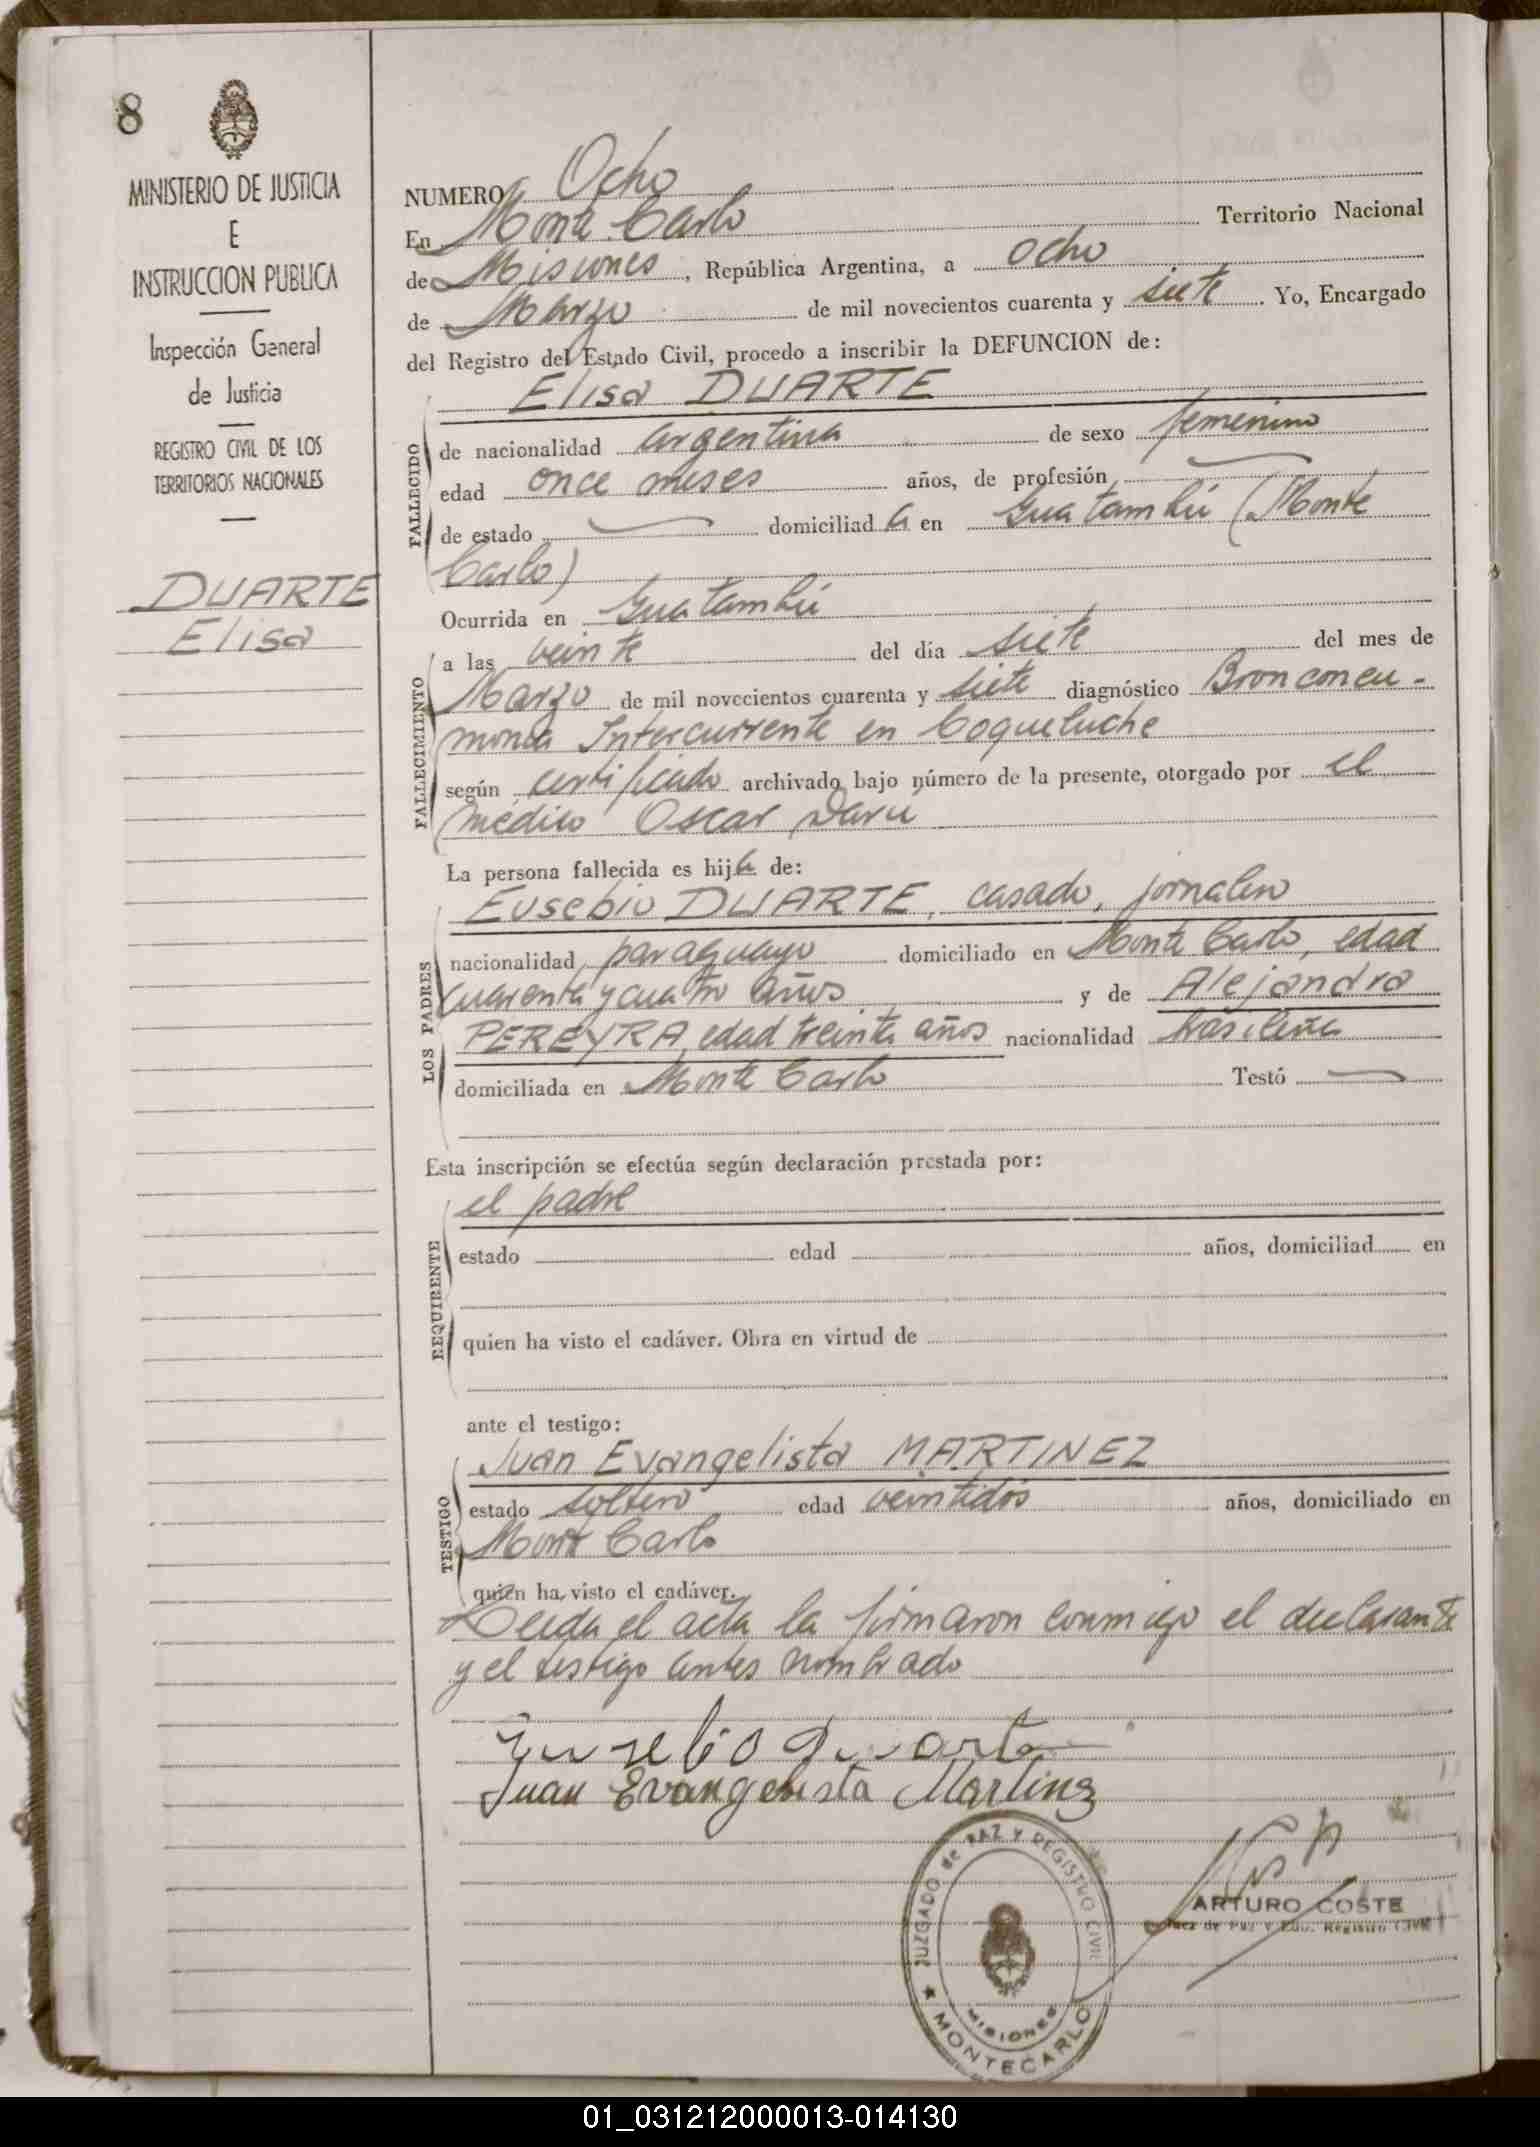 8
MINISTERIO DE JUSTICIA
E
INSTRUCCION PUBLICA
Inspección General
de Justicia
REGISTRO CIVIL DE LOS
TERRITORIOS NACIONALES
DUARTE
Elisa
NUMERO Ocho
En Monte Carlo Territorio Nacional
de Misiones, República Argentina, a ocho
de Marzo de mil novecientos cuarenta y siete. Yo, Encargado
del Registro del Estado Civil, procedo a inscribir la DEFUNCION de:
Elisa DUARTE
FALLECIDO
de nacionalidad argentina de sexo femenino
edad once meses años, de profesión
de estado domiciliada en Guatambú (Monte
Carlo)
Ocurrida en Guatambú
FALLECIMIENTO
a las veinte del día siete del mes de
Marzo de mil novecientos cuarenta y siete diagnóstico Bronconeu-
monia Intercurrente en Coqueluche
según certificado archivado bajo número de la presente, otorgado por el
médico Oscar Darú
La persona fallecida es hija de:
LOS PADRES
Eusebio DUARTE, casado, jornalero
nacionalidad paraguayo domiciliado en Monte Carlo, edad
cuarenta y cuatro años y de Alejandra
PEREYRA, edad treinta años nacionalidad brasileña
domiciliada en Monte Carlo Testó
Esta inscripción se efectúa según declaración prestada por:
REQUIRENTE
el padre
estado edad años, domiciliad en
quien ha visto el cadáver. Obra en virtud de
ante el testigo:
TESTIGO
Juan Evangelista MARTINEZ
estado soltero edad veintidós años, domiciliado en
Monte Carlo
quien ha visto el cadáver.
Leida el acta la firmaron conmigo el declarante
y el testigo antes nombrado
Eusebio Duarte
Juan Evangelista Martinez
JUZGADO de PAZ Y REGISTRO CIVIL
MISIONES
★ MONTECARLO
ARTURO COSTE
Juez de Paz y Enc. Registro Civil
01_031212000013-014130